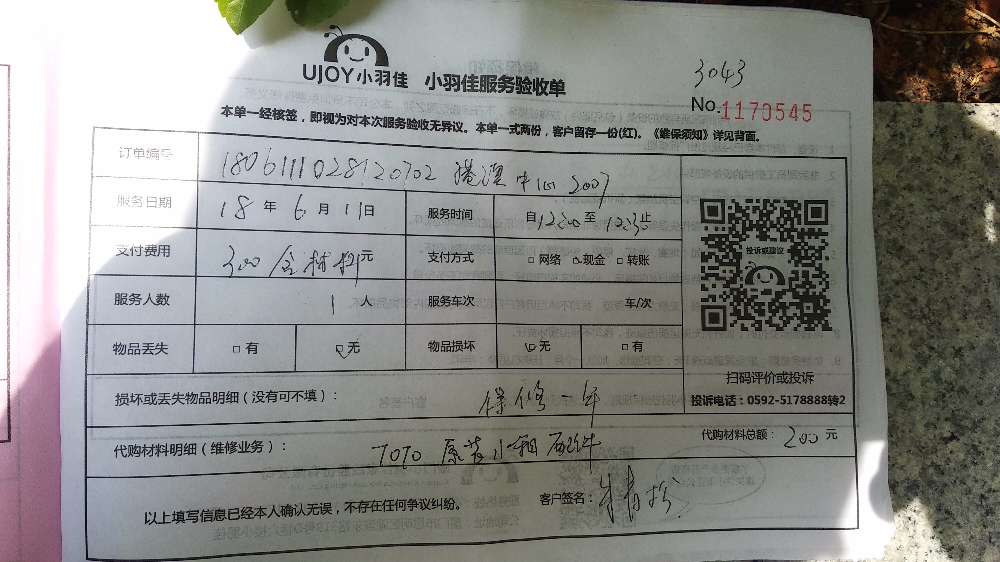 UJOY小羽佳 小羽佳服务验收单
3043
No.1170545
本单一经核签，即视为对本次服务验收无异议。本单一式两份，客户留存一份(红)。《维保须知》详见背面。
订单编号 1806111028120702 港澳中心 2007
服务日期 18 年 6 月 11 日 服务时间 自 12:00 至 12:30 止
支付费用 300 含材料 元 支付方式 □网络 现金 □转账
服务人数 1 人 服务车次 车/次
物品丢失 □有 无 物品损坏 无 □有
投诉或建议
扫码评价或投诉
投诉电话：0592-5178888转2
损坏或丢失物品明细（没有可不填）： 保修一年
代购材料明细（维修业务）： TOTO 原装水箱配件 代购材料总额：200 元
以上填写信息已经本人确认无误，不存在任何争议纠纷。 客户签名：